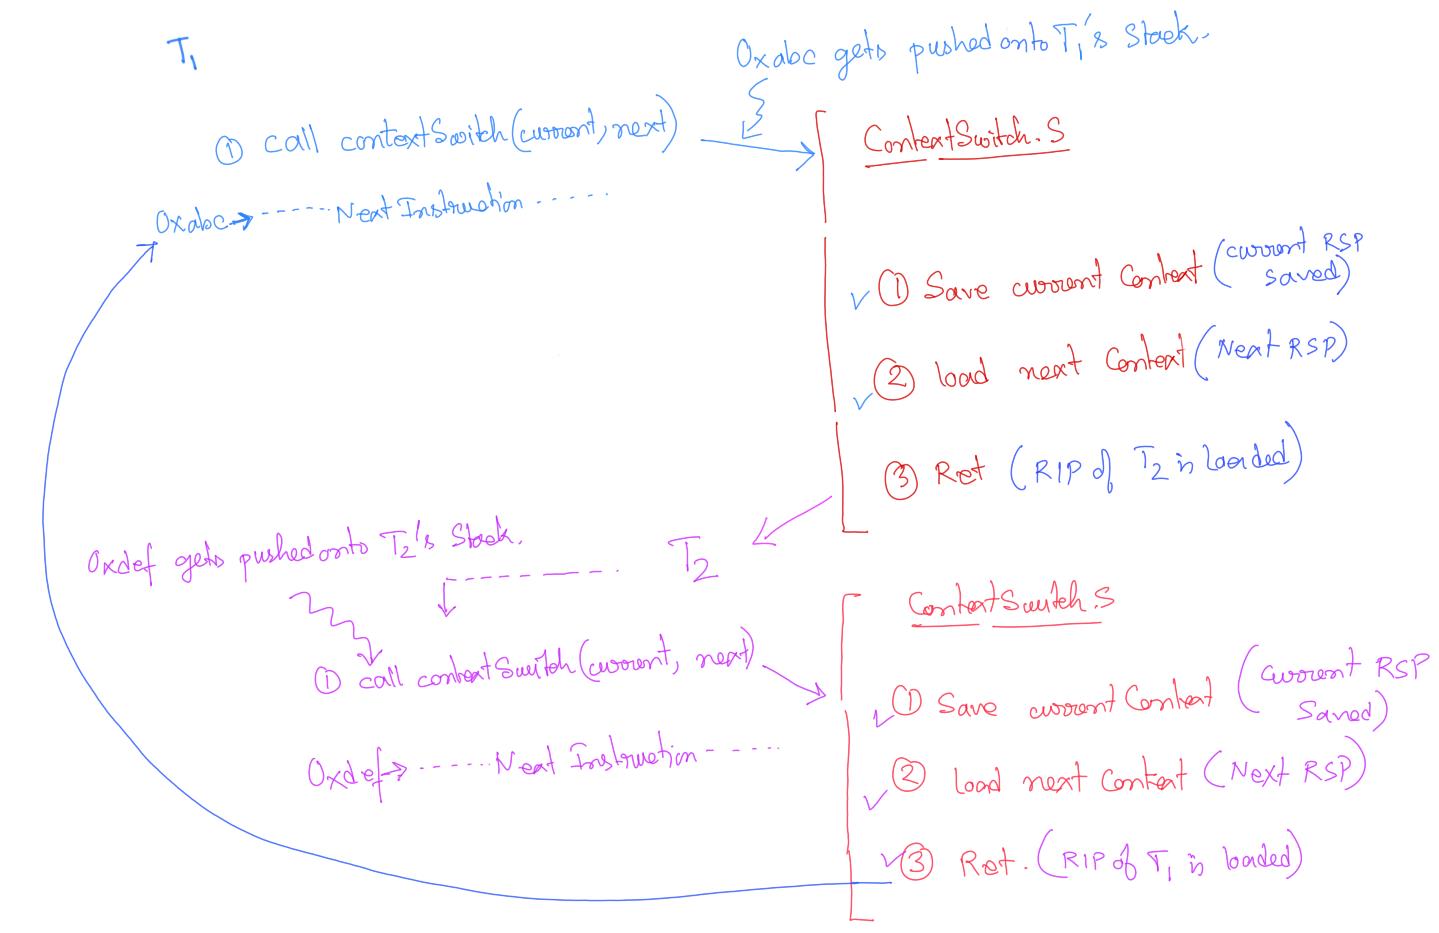 T₁
0xabc gets pushed onto T₁'s Stack.
① call contextSwitch(current, next)
0xabc→ ------ Next Instruction -----
ContextSwitch.S
✓ ① Save current Context (current RSP
saved)
✓ ② load next Context (Next RSP)
③ Ret (RIP of T₂ is loaded)
0xdef gets pushed onto T₂'s Stack.
T₂
① call contextSwitch(current, next)
0xdef→ ------ Next Instruction -----
ContextSwitch.S
✓ ① Save current Context (current RSP
Saved)
✓ ② load next Context (Next RSP)
✓ ③ Ret. (RIP of T₁ is loaded)